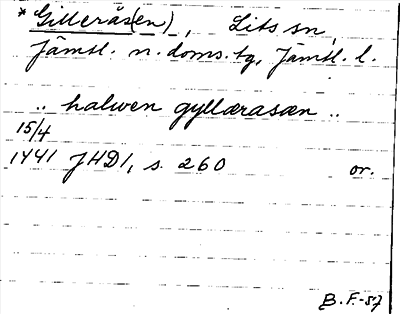 * Gillerås(en), Lits sn,
Jämtl. n. doms. tg, Jämtl. l.
.. halwen gyllærasæn ..
15/4
1441 JHD1, s. 260 or.
B.F.-57